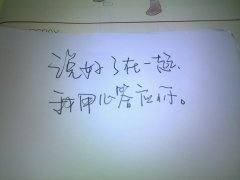 说好了在一起、
我用心答应你。